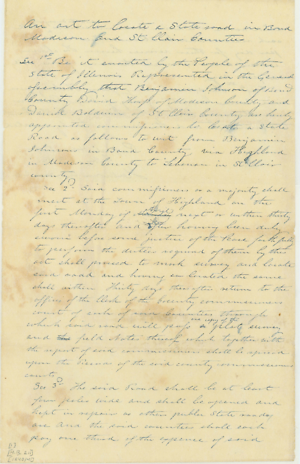 An act to Locate a State road in Bond
Madison and St Clair Counties
Sec 1st Be it enacted by the People of the
State of Illinois Represented in the General
Assembly that Benjamin Johnson of Bond
County David of Madison County and
of St Clair County are hereby
appointed commissioners to locate a State
Road as follows to wit from Benjamin
Johnsons in Bond County via Highland
in Madison County to Lebanon in St Clair
county
Sec 2d Said commissioners or a majority shall
meet at the Town of Highland on the
first Monday of next or within thirty
days thereafter and after having been duly
sworn before some justice of the Peace faithfully
to perform the duties required of them by this
act shall proceed to mark, survey & locate
said road and having so located the same
shall within thirty days thereafter return to the
office of the Clerk of the county commissioners
court of each of
which said road will pass a plat survey
and field Notes thereof which together with
the report of said commissioners shall be spread
upon the Record of the said county commissioners
courts.
Sec 3d The said Road shall be at least
four poles wide and shall be opened and
kept in repair as other public State roads
are and the said counties shall each
pay one third of the expense of said